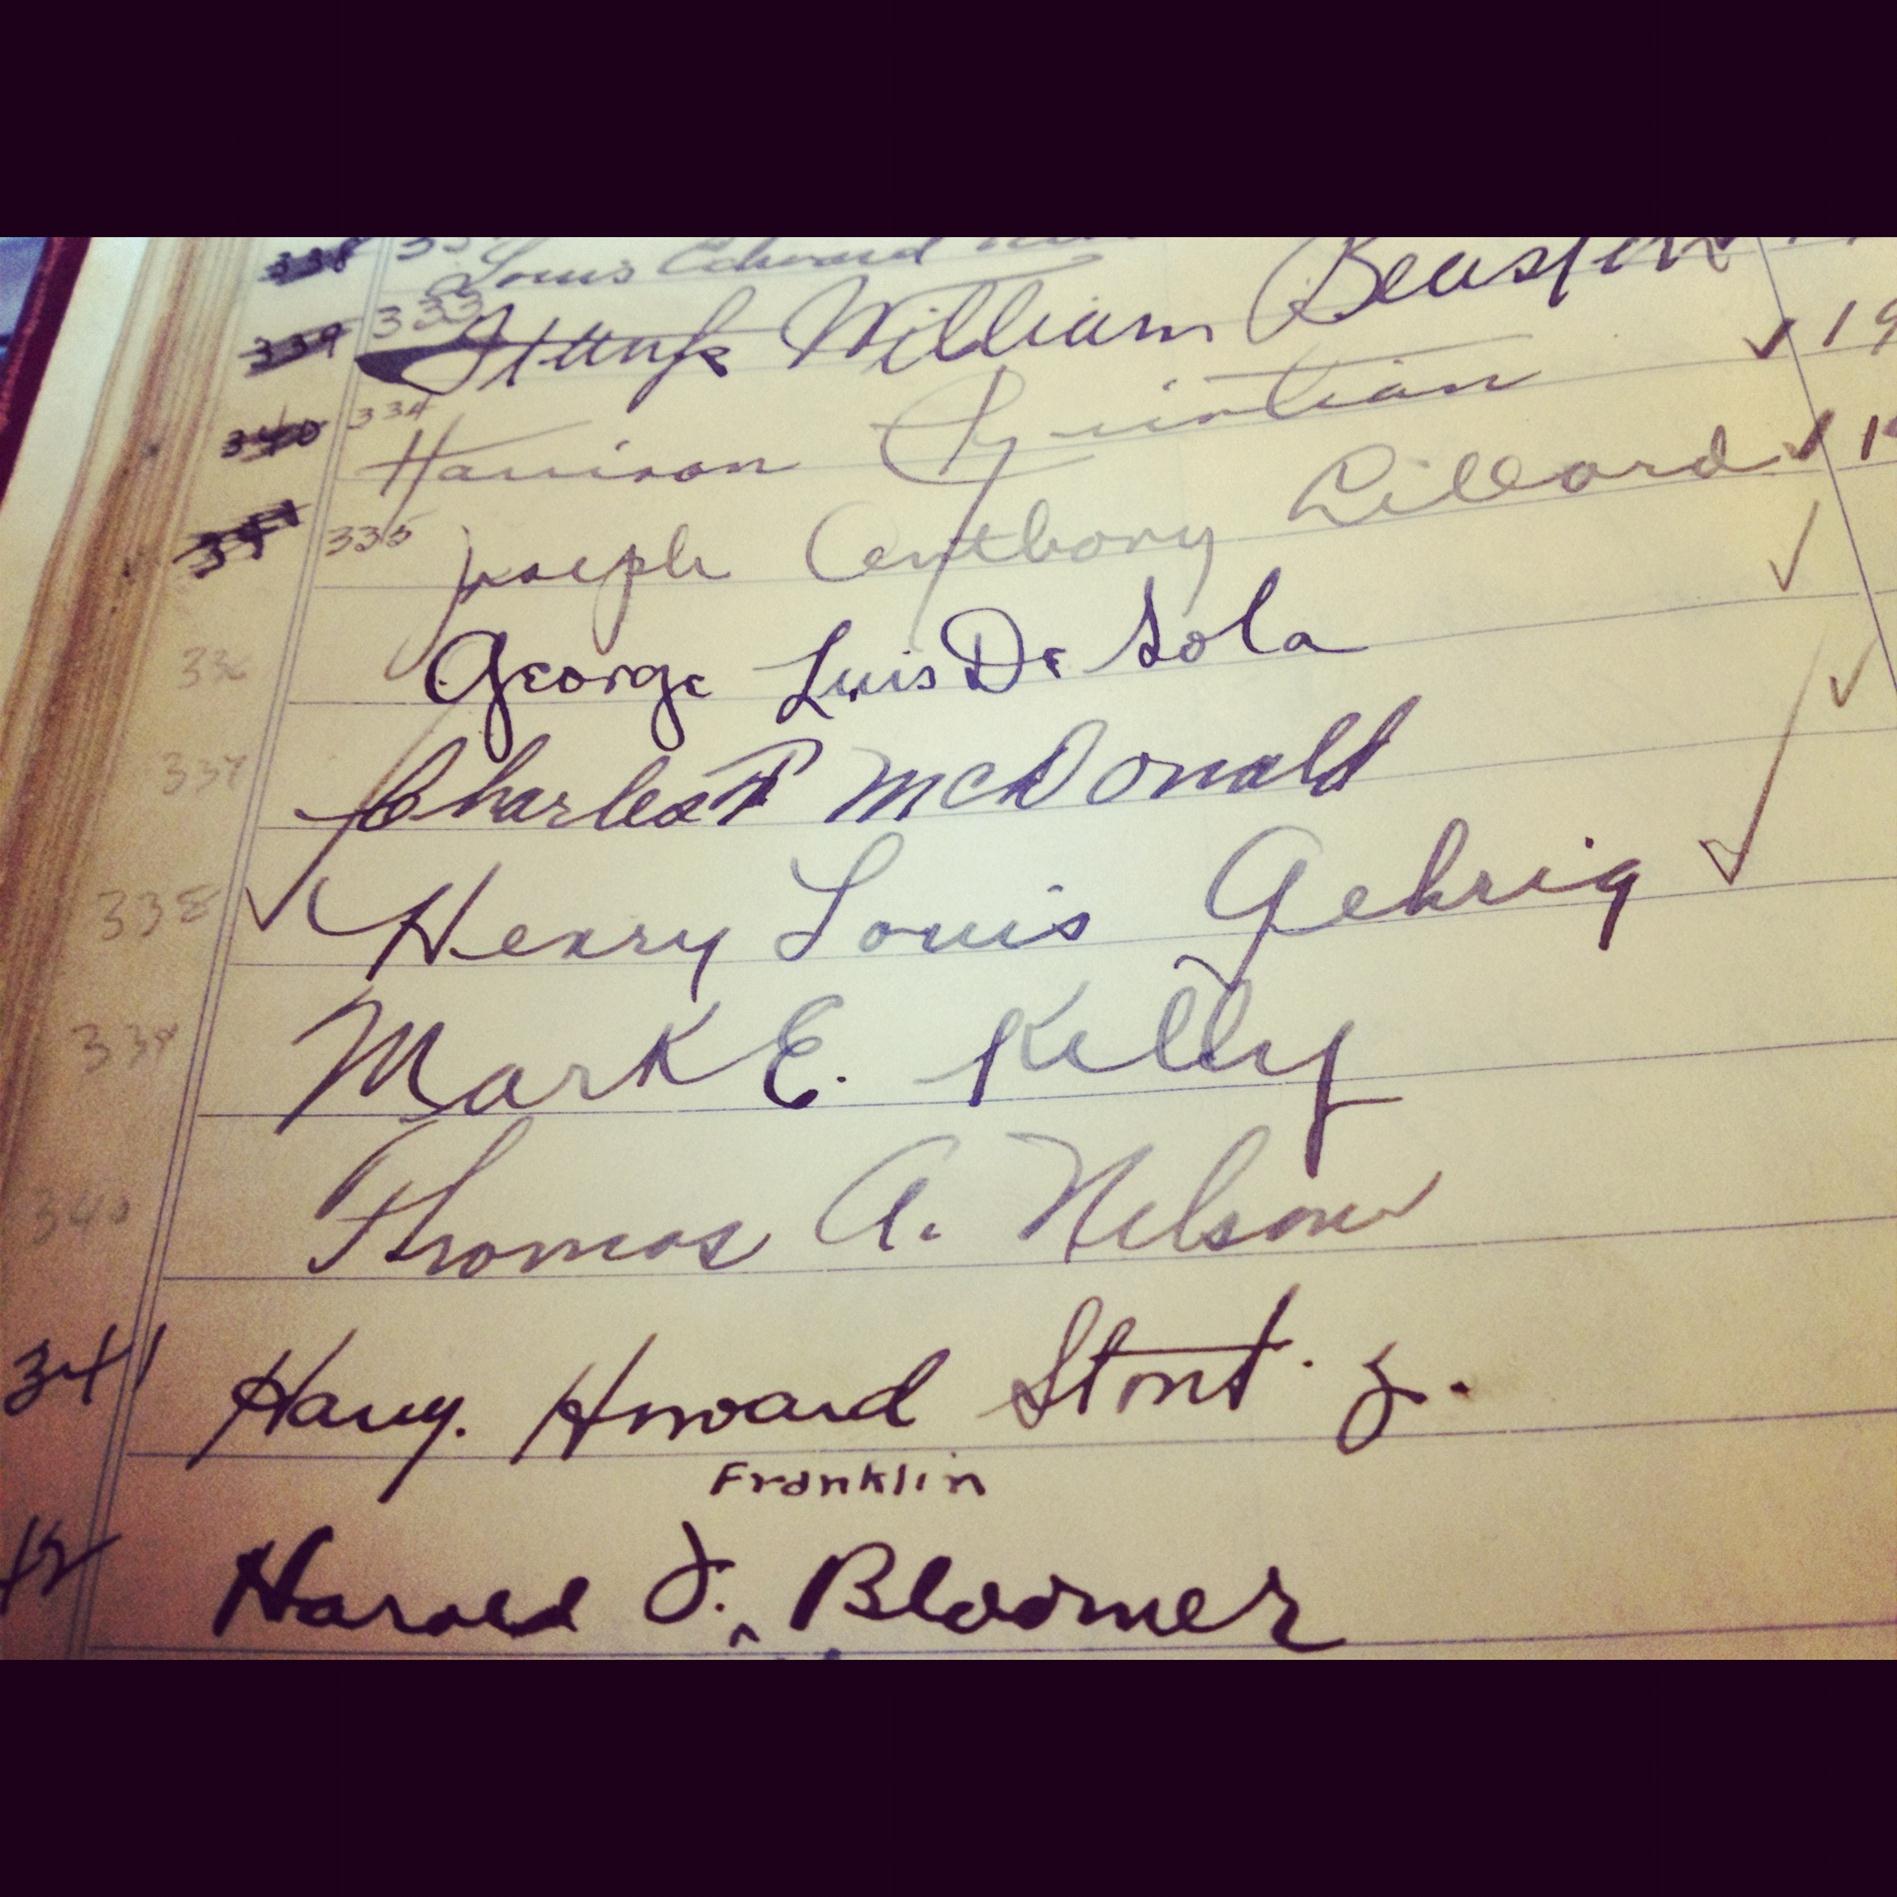 338 Louis Edward
339 333 William
340 334 Harrison Christian
335 Joseph Anthony Lillard 19
336 George Luis De Sola
337 Charles P McDonald
338 Henry Louis Gehrig
339 Mark E. Kelly
340 Thomas A. Nelson
341 Harry. Howard Stout. Jr.
Franklin
42 Harold F. ^ Bloomer